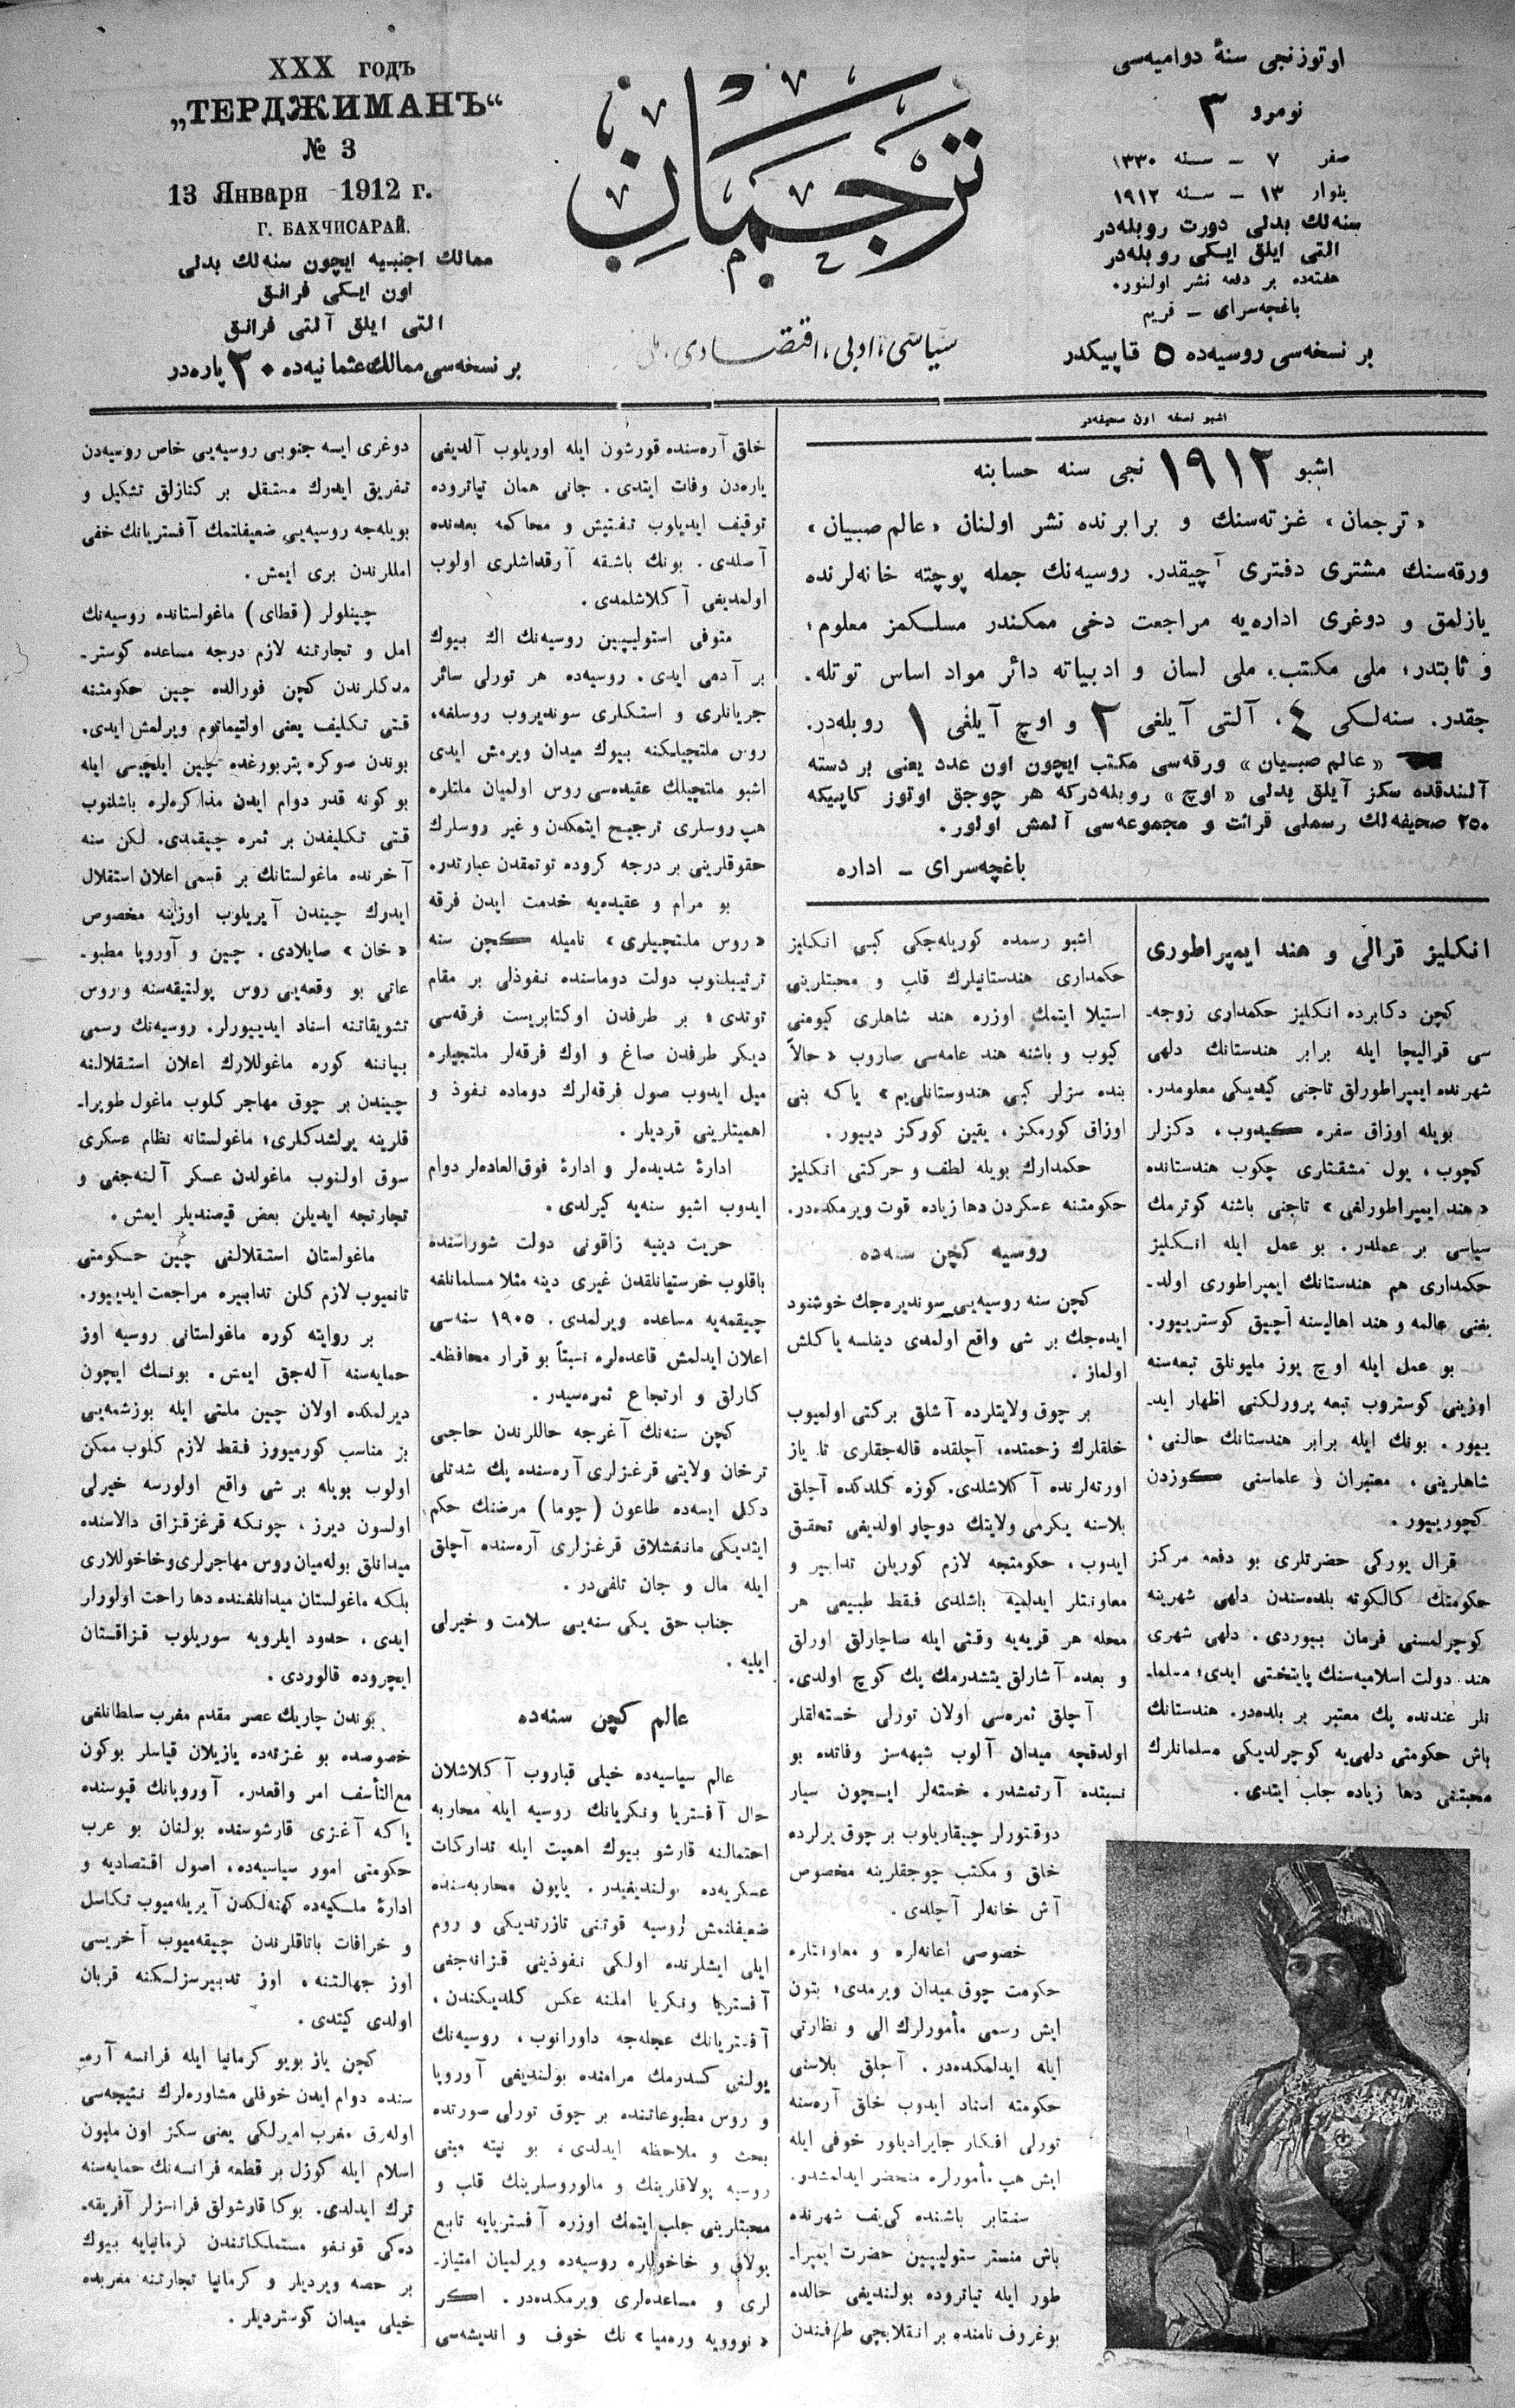 اوتوزنجی سنهٔ دوامیه‌سی
نومرو ٣
صفر ٧ ــ سنه ١٣٣٠
ینوار ١٣ ــ سنه ١٩١٢
سنه‌لك بدلی دورت روبله‌در
التی ایلق ایکی روبله‌در
هفته‌ده بر دفعه نشر اولنور.
باغچه‌سرای ــ قریم
بر نسخه‌سی روسیه‌ده ٥ قاپیکدر
ترجمان
سیاسی، ادبی، اقتصادی، ملی
XXX годъ
„ТЕРДЖИМАНЪ“
№ 3
13 Января 1912 г.
Г. БАХЧИСАРАЙ.
ممالك اجنبیه ایچون سنه‌لك بدلی
اون ایکی فرانق
التی ایلق آلتی فرانق
بر نسخه‌سی ممالك عثمانیه‌ده ٣٠ پاره‌در
اشبو نسخه اون صحیفه‌در
اشبو ١٩١٢ نجی سنه حسابنه
«ترجمان» غزته‌سنك و برابرنده نشر اولنان «عالم صبیان»
ورقه‌سنك مشتری دفتری آچیقدر. روسیه‌نك جمله پوچته خانه‌لرنده
یازلمق و دوغری اداره‌یه مراجعت دخی ممکندر مسلکمز معلوم؛
و ثابتدر؛ ملی مکتب، ملی لسان و ادبیاته دائر مواد اساس توتله‌
جقدر. سنه‌لکی ٤، آلتی آیلغی ٢ و اوچ آیلغی ١ روبله‌در.
«عالم صبیان» ورقه‌سی مکتب ایچون اون عدد یعنی بر دسته
آلندقده سکز آیلق بدلی «اوچ» روبله‌درکه هر چوجق اوتوز کاپیکه
٢٥٠ صحیفه‌لك رسملی قرائت و مجموعه‌سی آلمش اولور.
باغچه‌سرای ــ اداره
انکلیز قرالی و هند ایمپراطوری
کچن دکابرده انکلیز حکمداری زوجه‌ـ
سی قرالیچا ایله برابر هندستانك دلهی
شهرنده ایمپراطورلق تاجنی کیدیکی معلومدر.
بویله اوزاق سفره کیدوب، دکزلر
کچوب، یول مشقتاری چکوب هندستانده
«هند ایمپراطورلغی» تاجنی باشنه کوترمك
سیاسی بر عملدر. بو عمل ایله انکلیز
حکمداری هم هندستانك ایمپراطوری اولد‌ـ
یغنی عالمه و هند اهالیسنه آچیق کوستریپور.
بو عمل ایله اوچ یوز ملیونلق تبعه‌سنه
اوزینی کوستروب تبعه پرورلکنی اظهار اید‌ـ
ییور. بونك ایله برابر هندستانك حالنی،
شاهلرینی، معتبران و علماسنی کوزدن
کچورییور.
قرال یورکی حضرتلری بو دفعه مرکز
حکومتك کالکوته بلده‌سندن دلهی شهرینه
کوچرلمسنی فرمان بیوردی. دلهی شهری
هند دولت اسلامیه‌سنك پایتختی ایدی؛ مسلما‌ـ
نلر عندنده پك معتبر بر بلده‌در. هندستانك
باش حکومتی دلهی‌یه کوچرلدیکی مسلمانلرك
محبتنی دها زیاده جلب ایتدی.
اشبو رسمده کوریله‌جکی کبی انکلیز
حکمداری هندستانیلرك قلب و محبتلرینی
استیلا ایتمك اوزره هند شاهلری کیومنی
کیوب و باشنه هند عمامه‌سی صاروب «حالاً
بنده سزلر کبی هندوستانلی‌یم» یاکه بنی
اوزاق کورمکز، یقین کورکز دیپور.
حکمدارك بویله لطف و حرکتی انکلیز
حکومتنه عسکردن دها زیاده قوت ویرمکده‌در.
روسیه کچن سنه‌ده
کچن سنه روسیه‌یی سوندیره‌جك خوشنود
ایده‌جك بر شی واقع اولمدی دینلسه یاکلش
اولماز.
بر چوق ولایتلرده آشلق برکتی اولمیوب
خلقلرك زحمتده، آچلقده قاله‌جقلری تا یاز
اورته‌لرنده آکلاشلدی. کوزه کلدکده آچلق
بلاسنه یکرمی ولایتك دوچار اولدیغی تحقق
ایدوب، حکومتجه لازم کوریلن تدابیر و
معاونتلر ایدلمیه باشلدی فقط طبیعی هر
محله هر قریه‌یه وقتی ایله صاچارلق اورلق
و بعده آشارلق یتشدرمك پك کوچ اولدی.
آچلق ثمره‌سی اولان تورلی خسته‌لقلر
اولدقچه میدان آلوب شبهه‌سز وفاتده بو
نسبتده آرتمشدر. خسته‌لر ایچون سیار
دوقتورلر چیقاریلوب بر چوق یرلرده
خلق و مکتب چوجقلرینه مخصوص
آش خانه‌لر آچلدی.
خصوصی اعانه‌لره و معاونتاره
حکومت چوق میدان ویرمدی؛ بتون
ایش رسمی مأمورلرك الی و نظارتی
ایله ایدلمکده‌در. آچلق بلاسنی
حکومته اسناد ایدوب خلق آره‌سنه
تورلی افکار جایرادیلور خوفی ایله
ایش هپ مأمورلره منحصر ایدلمشدر.
سنتابر باشنده کی‌یف شهرنده
باش منستر ستولیپین حضرت ایمپرا‌ـ
طور ایله تیاتروده بولندیغی حالده
بوغروف نامنده بر انقلابجی طرفندن
خلق آره‌سنده قورشون ایله اوریلوب آلدیغی
یاره‌دن وفات ایتدی. جانی همان تیاتروده
توقیف ایدیلوب تفتیش و محاکمه بعدنده
آصلدی. بونك باشقه آرقداشلری اولوب
اولمدیغی آکلاشلمدی.
متوفی استولیپین روسیه‌نك اك بیوك
بر آدمی ایدی. روسیه‌ده هر تورلی سائر
جریانلری و استکلری سوندیروب روسلغه،
روس ملتچیلیکنه بیوك میدان ویرمش ایدی
اشبو ملتچیلك عقیده‌سی روس اولمیان ملتلره
هپ روسلری ترجیح ایتمکدن و غیر روسلرك
حقوقلرینی بر درجه کروده توتمقدن عبارتدر.
بو مرام و عقیده‌یه خدمت ایدن فرقه
«روس ملتچیلری» نامیله کچن سنه
ترتیبلنوب دولت دوماسنده نفوذلی بر مقام
توتدی؛ بر طرفدن اوکتابریست فرقه‌سی
دیکر طرفدن صاغ و اوك فرقه‌لر ملتچیلره
میل ایدوب صول فرقه‌لرك دوماده نفوذ و
اهمیتلرینی قردیلر.
ادارهٔ شدیده‌لر و ادارهٔ فوق‌العاده‌لر دوام
ایدوب اشبو سنه‌یه کیرلدی.
حریت دینیه زاقونی دولت شوراسنده
باقلوب خرستیانلقدن غیری دینه مثلا مسلمانلغه
چیقمه‌یه مساعده ویرلمدی. ١٩٠٥ سنه‌سی
اعلان ایدلمش قاعده‌لره نسبتاً بو قرار محافظه‌ـ
کارلق و ارتجاع ثمره‌سیدر.
کچن سنه‌نك آغرجه حاللرندن حاجی
ترخان ولایتی قرغزلری آره‌سنده پك شدتلی
دکل ایسه‌ده طاعون (چوما) مرضنك حکم
ایتدیکی مانغشلاق قرغزلری آره‌سنده آچلق
ایله مال و جان تلفی‌در.
جناب حق یکی سنه‌یی سلامت و خیرلی
ایلیه.
عالم کچن سنه‌ده
عالم سیاسیه‌ده خیلی قباروب آکلاشلان
حال آفستریا ونکریانك روسیه ایله محاربه
احتمالنه قارشو بیوك اهمیت ایله تدارکات
عسکریه‌ده بولندیغیدر. یاپون محاربه‌سنده
ضعیفلنمش روسیه قوتنی تازرتدیکی و روم
ایلی ایشلرنده اولکی نفوذینی قزانه‌جغی
آفستریا ونکریا املنه عکس کلدیکندن،
آفستریانك عجله‌جه داورانوب، روسیه‌نك
یولنی کسدرمك مرامنده بولندیغی آوروپا
و روس مطبوعاتنده بر چوق تورلی صورتده
بحث و ملاحظه ایدلدی. بو نیته مبنی
روسیه پولاقلرینك و مالوروسلرینك قلب و
محبتلرینی جلب ایتمك اوزره آفستریایه تابع
پولاق و خاخوللره روسیه‌ده ویرلمیان امتیاز‌ـ
لری و مساعده‌لری ویرمکده‌در. اکر
«نوویه وره‌میا» نك خوف و اندیشه‌سی
دوغری ایسه جنوبی روسیه‌یی خاص روسیه‌دن
تفریق ایدرك مستقل بر کنازلق تشکیل و
بویله‌جه روسیه‌یی ضعیفلتمك آفستریانك خفی
امللرندن بری ایمش.
چینلولر (قطای) ماغولستانده روسیه‌نك
امل و تجارتنه لازم درجه مساعده کوستر‌ـ
مدکلرندن کچن فورالده چین حکومتنه
قتی تکلیف یعنی اولتیماتوم ویرلمش ایدی.
بوندن صوکره پتربورغده چین ایلچیسی ایله
بو کونه قدر دوام ایدن مذاکره‌لره باشلنوب
قتی تکلیفدن بر ثمره چیقمدی. لکن سنه
آخرنده ماغولستانك بر قسمی اعلان استقلال
ایدرك چیندن آیریلوب اوزینه مخصوص
«خان» صایلادی. چین و آوروپا مطبو‌ـ
عاتی بو وقعه‌یی روس پولتیقه‌سنه و روس
تشویقاتنه اسناد ایدییورلر. روسیه‌نك رسمی
بیاننه کوره ماغوللارك اعلان استقلالنه
چیندن بر چوق مهاجر کلوب ماغول طوپرا‌ـ
قلرینه یرلشدکلری؛ ماغولستانه نظام عسکری
سوق اولنوب ماغولدن عسکر آلنه‌جغی و
تجارتجه ایدیلن بعض قیصندیلر ایمش.
ماغولستان استقلالغی چین حکومتی
تانمیوب لازم کلن تدابیره مراجعت ایدییور.
بر روایته کوره ماغولستانی روسیه اوز
حمایه‌سنه آله‌جق ایمش. بونك ایچون
دیرلمکده اولان چین ملتی ایله بوزشمه‌یی
بز مناسب کورمیورز فقط لازم کلوب ممکن
اولوب بویله بر شی واقع اولورسه خیرلی
اولسون دیرز، چونکه قرغزقزاق دالاسنده
میدانلق بوله‌میان روس مهاجرلری و خاخوللاری
بلکه ماغولستان میدانلغنده دها راحت اولورلر
ایدی، حدود ایلرویه سوریلوب قزاقستان
ایچروده قالوردی.
بوندن چاریك عصر مقدم مغرب سلطانلغی
خصوصده بو غزته‌ده یازیلان قیاسلر بوکون
مع‌التأسف امر واقعدر. آوروپانك قپوسنده
یاکه آغزی قارشوسنده بولنان بو عرب
حکومتی امور سیاسیه‌ده، اصول اقتصادیه و
ادارهٔ ملکیه‌ده کهنه‌لکدن آیریله‌میوب تکاسل
و خرافات باتاقلرندن چیقه‌میوب آخریسی
اوز جهالتنه، اوز تدبیرسزلکنه قربان
اولدی کیتدی.
کچن یاز بویو کرمانیا ایله فرانسه آره‌ـ
سنده دوام ایدن خوفلی مشاوره‌لرك نتیجه‌سی
اوله‌رق مغرب امیرلکی یعنی سکز اون ملیون
اسلام ایله کوزل بر قطعه فرانسه‌نك حمایه‌سنه
ترك ایدلدی. بوکا قارشولق فرانسزلر آفریقه‌ـ
ده‌کی قونغو مستملکاتندن کرمانیایه بیوك
بر حصه ویردیلر و کرمانیا تجارتنه مغربده
خیلی میدان کوستردیلر.